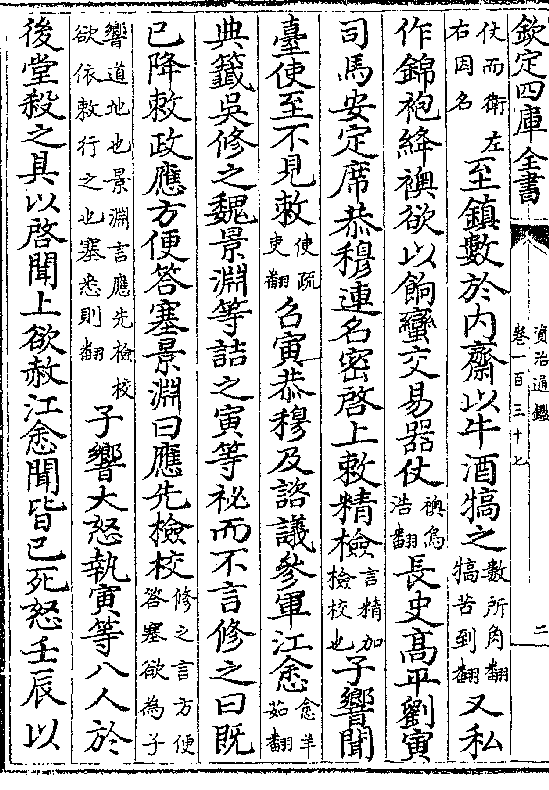 欽定四庫全書
資治通鑑
卷一百三十七
二
仗而衛左
右因名
至鎮數於内齋以牛酒犒之
數所角翻
犒苦到翻
又私
作錦袍絳襖欲以餉蠻交易器仗
襖烏
浩翻
長史高平劉寅
司馬安定席恭穆連名宻啓上敕精檢
言精加
檢校也
子響聞
臺使至不見敕
使疏
吏翻
召寅恭穆及諮議參軍江悆
悆羊
茹翻
典籖吳修之魏景淵等詰之寅等祕而不言修之曰既
已降敕政應方便答塞景淵曰應先檢校
修之言方便
答塞欲為子
響道地也景淵言應先檢校
欲依敕行之也塞悉則翻
子響大怒執寅等八人於
後堂殺之具以啓聞上欲赦江悆聞皆已死怒壬辰以